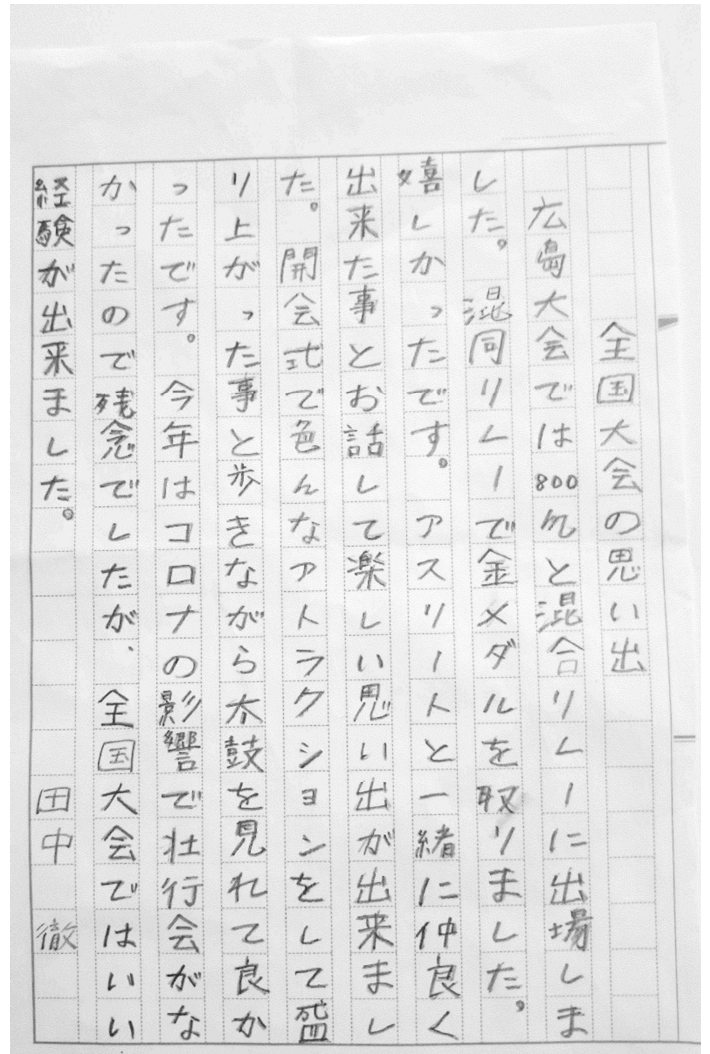 全国大会の思い出
広島大会では800mと混合リレーに出場しま
した。混同リレーで金メダルを取りました。
嬉しかったです。アスリートと一緒に仲良く
出来た事とお話して楽しい思い出が出来まし
た。開会式で色んなアトラクションをして盛
り上がった事と歩きながら太鼓を見れて良か
ったです。今年はコロナの影響で壮行会がな
かったので残念でしたが、全国大会ではいい
経験が出来ました。 田中 徹